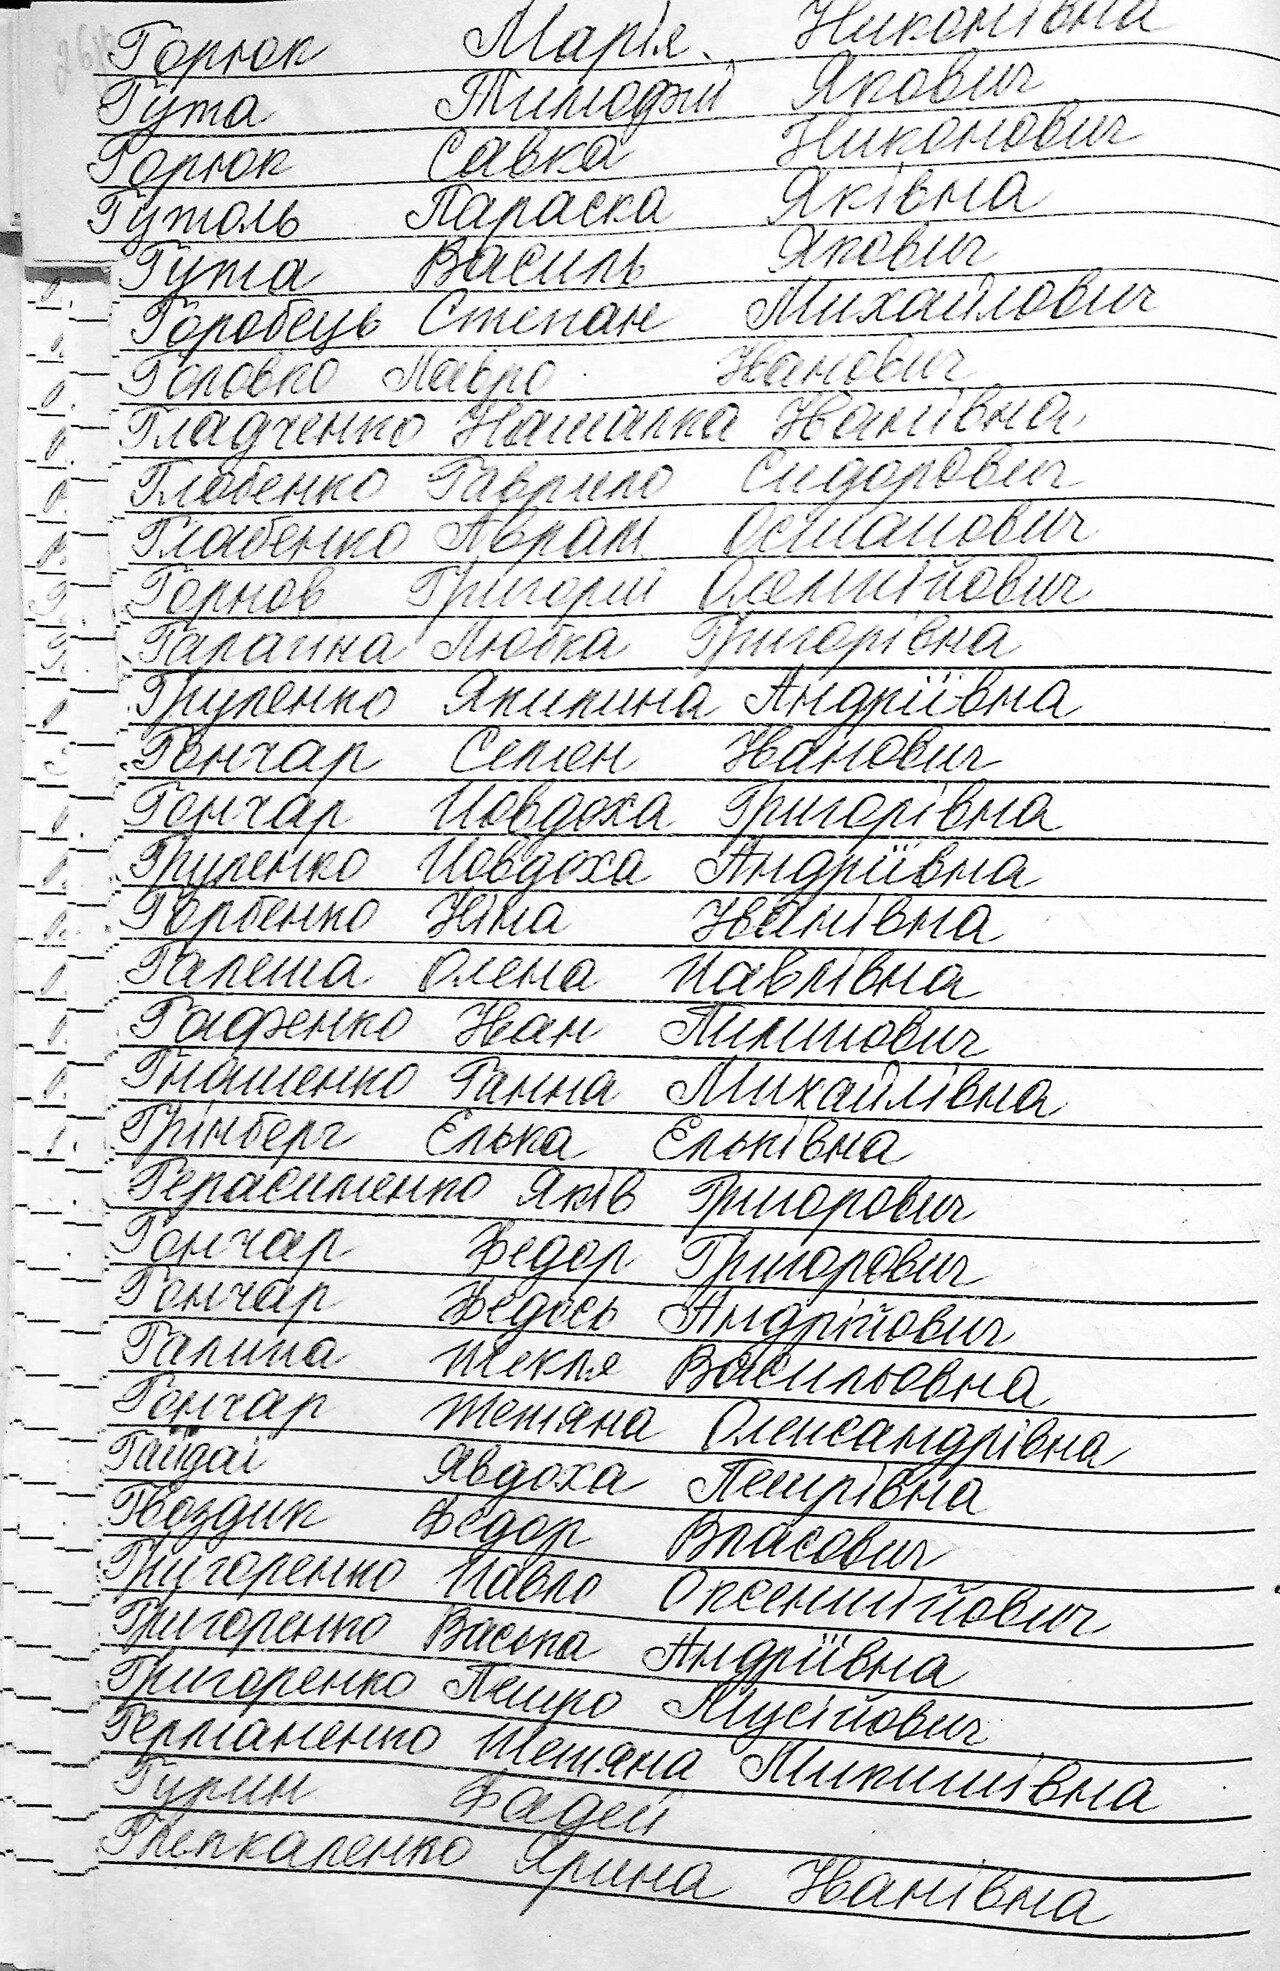 Горюк Марія Никонівна
Гута Тимофій Якович
Горюк Савка Никонович
Гутоль Параска Яківна
Гута Василь Якович
Горобець Степан Михайлович
Головко Павло Іванович
Гладченко Наталка Іванівна
Глобенко Гаврило Сидорович
Глабенко Аврам Остапович
Горнов Григорій Олентійович
Гарагіна Любка Григорівна
Груленко Якилина Андріївна
Гончар Семен Іванович
Гончар Ивдоха Григорівна
Груленко Ивдоха Андріївна
Горбенко Ніна Іванівна
Галеша Олена Павлівна
Гафенко Іван Пилипович
Гнатенко Ганна Михайлівна
Грінберг Елька Ельківна
Герасименко Яків Григорович
Гончар Федор Григорович
Гончар Федось Андрійович
Галина Текля Васильовна
Гончар Тетяна Олександрівна
Гайдаі Явдоха Петрівна
Гвоздик Федор Власович
Григоренко Павло Оксентійович
Григоренко Васька Андріївна
Григоренко Петро Мусійович
Германенко Тетяна Микитівна
Гурин Фадей
Ярина Іванівна